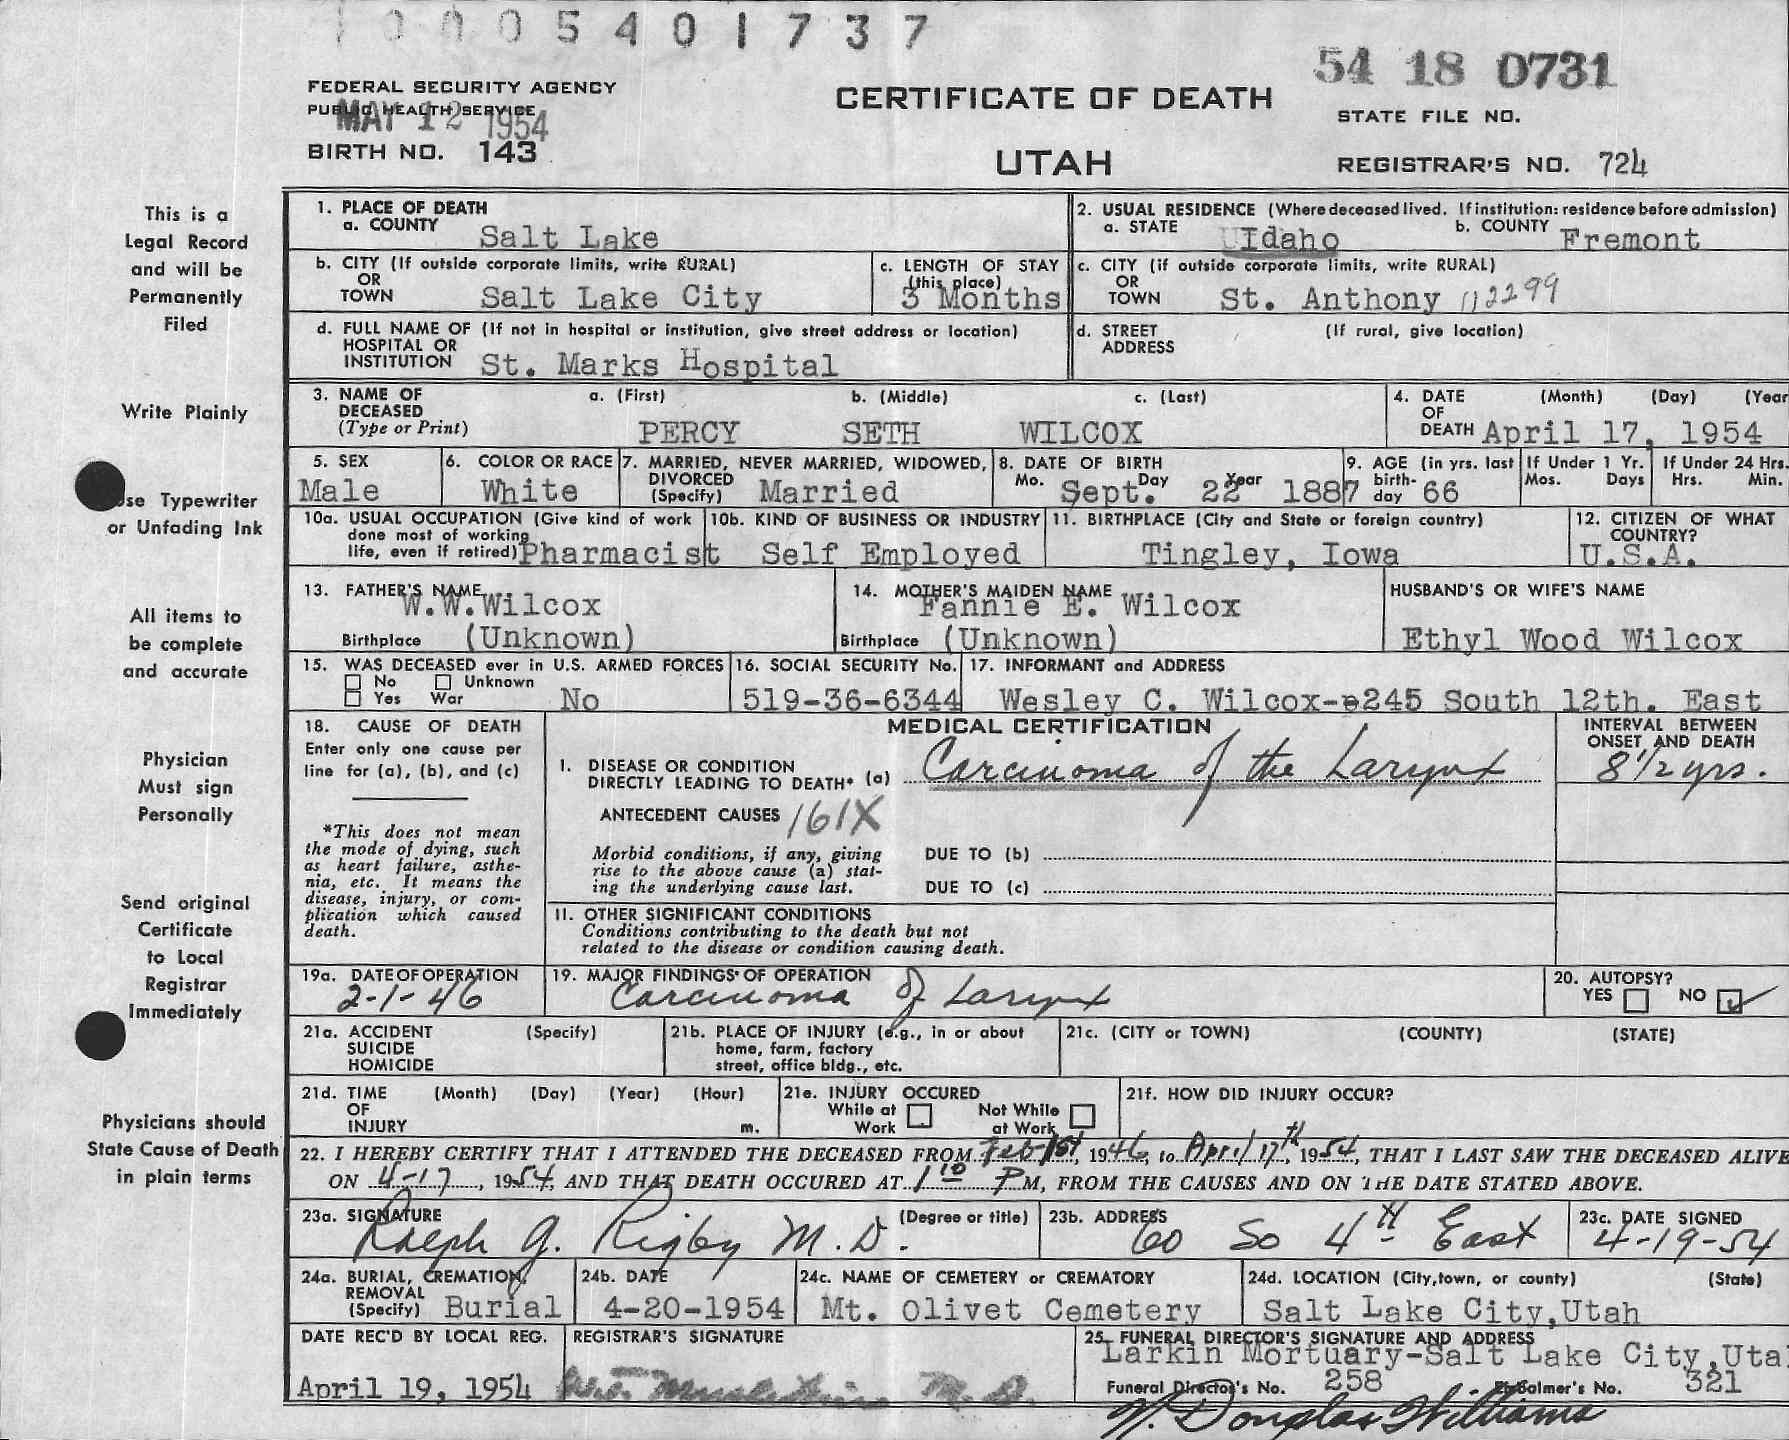 1 0 0 0 5 4 0 1 7 3 7
54 18 0731
FEDERAL SECURITY AGENCY
PUBLIC HEALTH SERVICE
MAY 12 1954
BIRTH NO. 143
CERTIFICATE OF DEATH
UTAH
STATE FILE NO.
REGISTRAR'S NO. 724
This is a
Legal Record
and will be
Permanently
Filed
Write Plainly
Use Typewriter
or Unfading Ink
All items to
be complete
and accurate
Physician
Must sign
Personally
Send original
Certificate
to Local
Registrar
Immediately
Physicians should
State Cause of Death
in plain terms
1. PLACE OF DEATH
a. COUNTY Salt Lake
2. USUAL RESIDENCE (Where deceased lived. If institution: residence before admission)
a. STATE Idaho b. COUNTY Fremont
b. CITY (If outside corporate limits, write RURAL)
OR
TOWN Salt Lake City
c. LENGTH OF STAY
(this place)
3 Months
c. CITY (if outside corporate limits, write RURAL)
OR
TOWN St. Anthony 112299
d. FULL NAME OF (If not in hospital or institution, give street address or location)
HOSPITAL OR
INSTITUTION St. Marks Hospital
d. STREET (If rural, give location)
ADDRESS
3. NAME OF a. (First) b. (Middle) c. (Last)
DECEASED
(Type or Print) PERCY SETH WILCOX
4. DATE (Month) (Day) (Year
OF
DEATH April 17, 1954
5. SEX
Male
6. COLOR OR RACE
White
7. MARRIED, NEVER MARRIED, WIDOWED,
DIVORCED
(Specify) Married
8. DATE OF BIRTH
Mo. Day Year
Sept. 22 1887
9. AGE (in yrs. last
birth-
day 66
If Under 1 Yr.
Mos. Days
If Under 24 Hrs.
Hrs. Min.
10a. USUAL OCCUPATION (Give kind of work
done most of working
life, even if retired) Pharmacist
10b. KIND OF BUSINESS OR INDUSTRY
Self Employed
11. BIRTHPLACE (City and State or foreign country)
Tingley, Iowa
12. CITIZEN OF WHAT
COUNTRY?
U.S.A.
13. FATHER'S NAME
W.W.Wilcox
Birthplace (Unknown)
14. MOTHER'S MAIDEN NAME
Fannie E. Wilcox
Birthplace (Unknown)
HUSBAND'S OR WIFE'S NAME
Ethyl Wood Wilcox
15. WAS DECEASED ever in U.S. ARMED FORCES
No Unknown
Yes War No
16. SOCIAL SECURITY No.
519-36-6344
17. INFORMANT and ADDRESS
Wesley C. Wilcox-245 South 12th. East
18. CAUSE OF DEATH
Enter only one cause per
line for (a), (b), and (c)
*This does not mean
the mode of dying, such
as heart failure, asthe-
nia, etc. It means the
disease, injury, or com-
plication which caused
death.
MEDICAL CERTIFICATION
I. DISEASE OR CONDITION
DIRECTLY LEADING TO DEATH* (a) Carcinoma of the Larynx
ANTECEDENT CAUSES 161X
Morbid conditions, if any, giving
rise to the above cause (a) stat-
ing the underlying cause last.
DUE TO (b)
DUE TO (c)
II. OTHER SIGNIFICANT CONDITIONS
Conditions contributing to the death but not
related to the disease or condition causing death.
INTERVAL BETWEEN
ONSET AND DEATH
8 1/2 yrs.
19a. DATE OF OPERATION
2-1-46
19. MAJOR FINDINGS OF OPERATION
Carcinoma of Larynx
20. AUTOPSY?
YES NO
21a. ACCIDENT (Specify)
SUICIDE
HOMICIDE
21b. PLACE OF INJURY (e.g., in or about
home, farm, factory
street, office bldg., etc.
21c. (CITY or TOWN) (COUNTY) (STATE)
21d. TIME (Month) (Day) (Year) (Hour)
OF
INJURY m.
21e. INJURY OCCURED
While at Not While
Work at Work
21f. HOW DID INJURY OCCUR?
22. I HEREBY CERTIFY THAT I ATTENDED THE DECEASED FROM Feb 1st, 1946, to April 17th, 1954, THAT I LAST SAW THE DECEASED ALIVE
ON 4-17, 1954, AND THAT DEATH OCCURED AT 1 10 PM, FROM THE CAUSES AND ON THE DATE STATED ABOVE.
23a. SIGNATURE (Degree or title)
Ralph G. Rigby M.D.
23b. ADDRESS
60 So 4th East
23c. DATE SIGNED
4-19-54
24a. BURIAL, CREMATION,
REMOVAL
(Specify) Burial
24b. DATE
4-20-1954
24c. NAME OF CEMETERY or CREMATORY
Mt. Olivet Cemetery
24d. LOCATION (City,town, or county) (State)
Salt Lake City,Utah
DATE REC'D BY LOCAL REG.
April 19, 1954
REGISTRAR'S SIGNATURE
M. D.
25. FUNERAL DIRECTOR'S SIGNATURE AND ADDRESS
Larkin Mortuary-Salt Lake City,Uta
Funeral Director's No. 258 Embalmer's No. 321
N. Douglas Williams